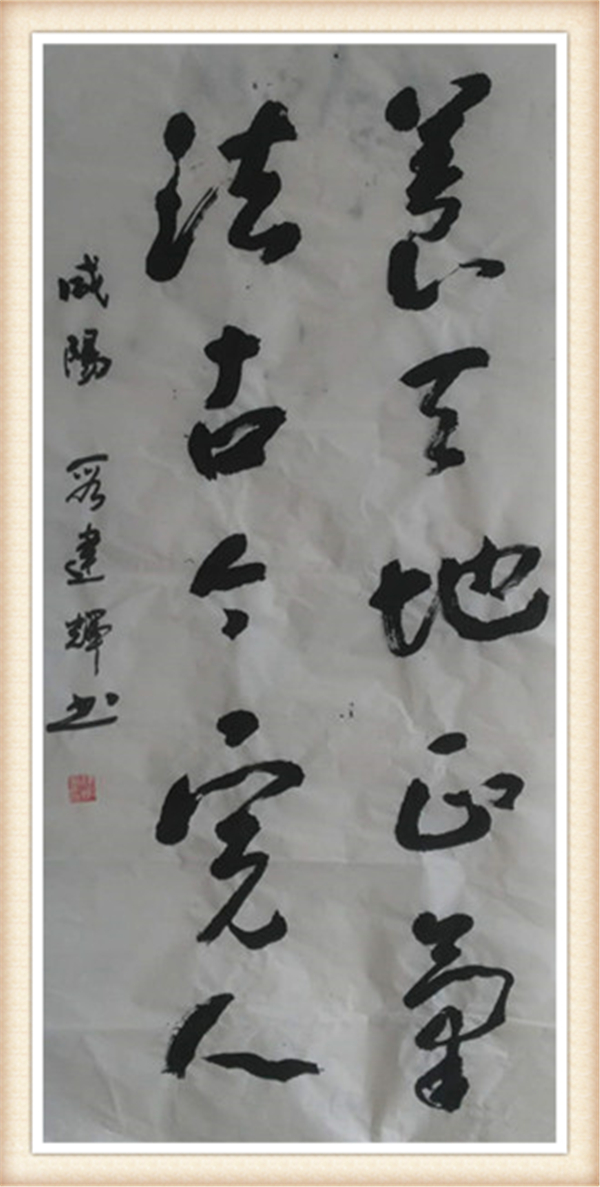 養天地正氣
法古今完人
咸陽 建輝书